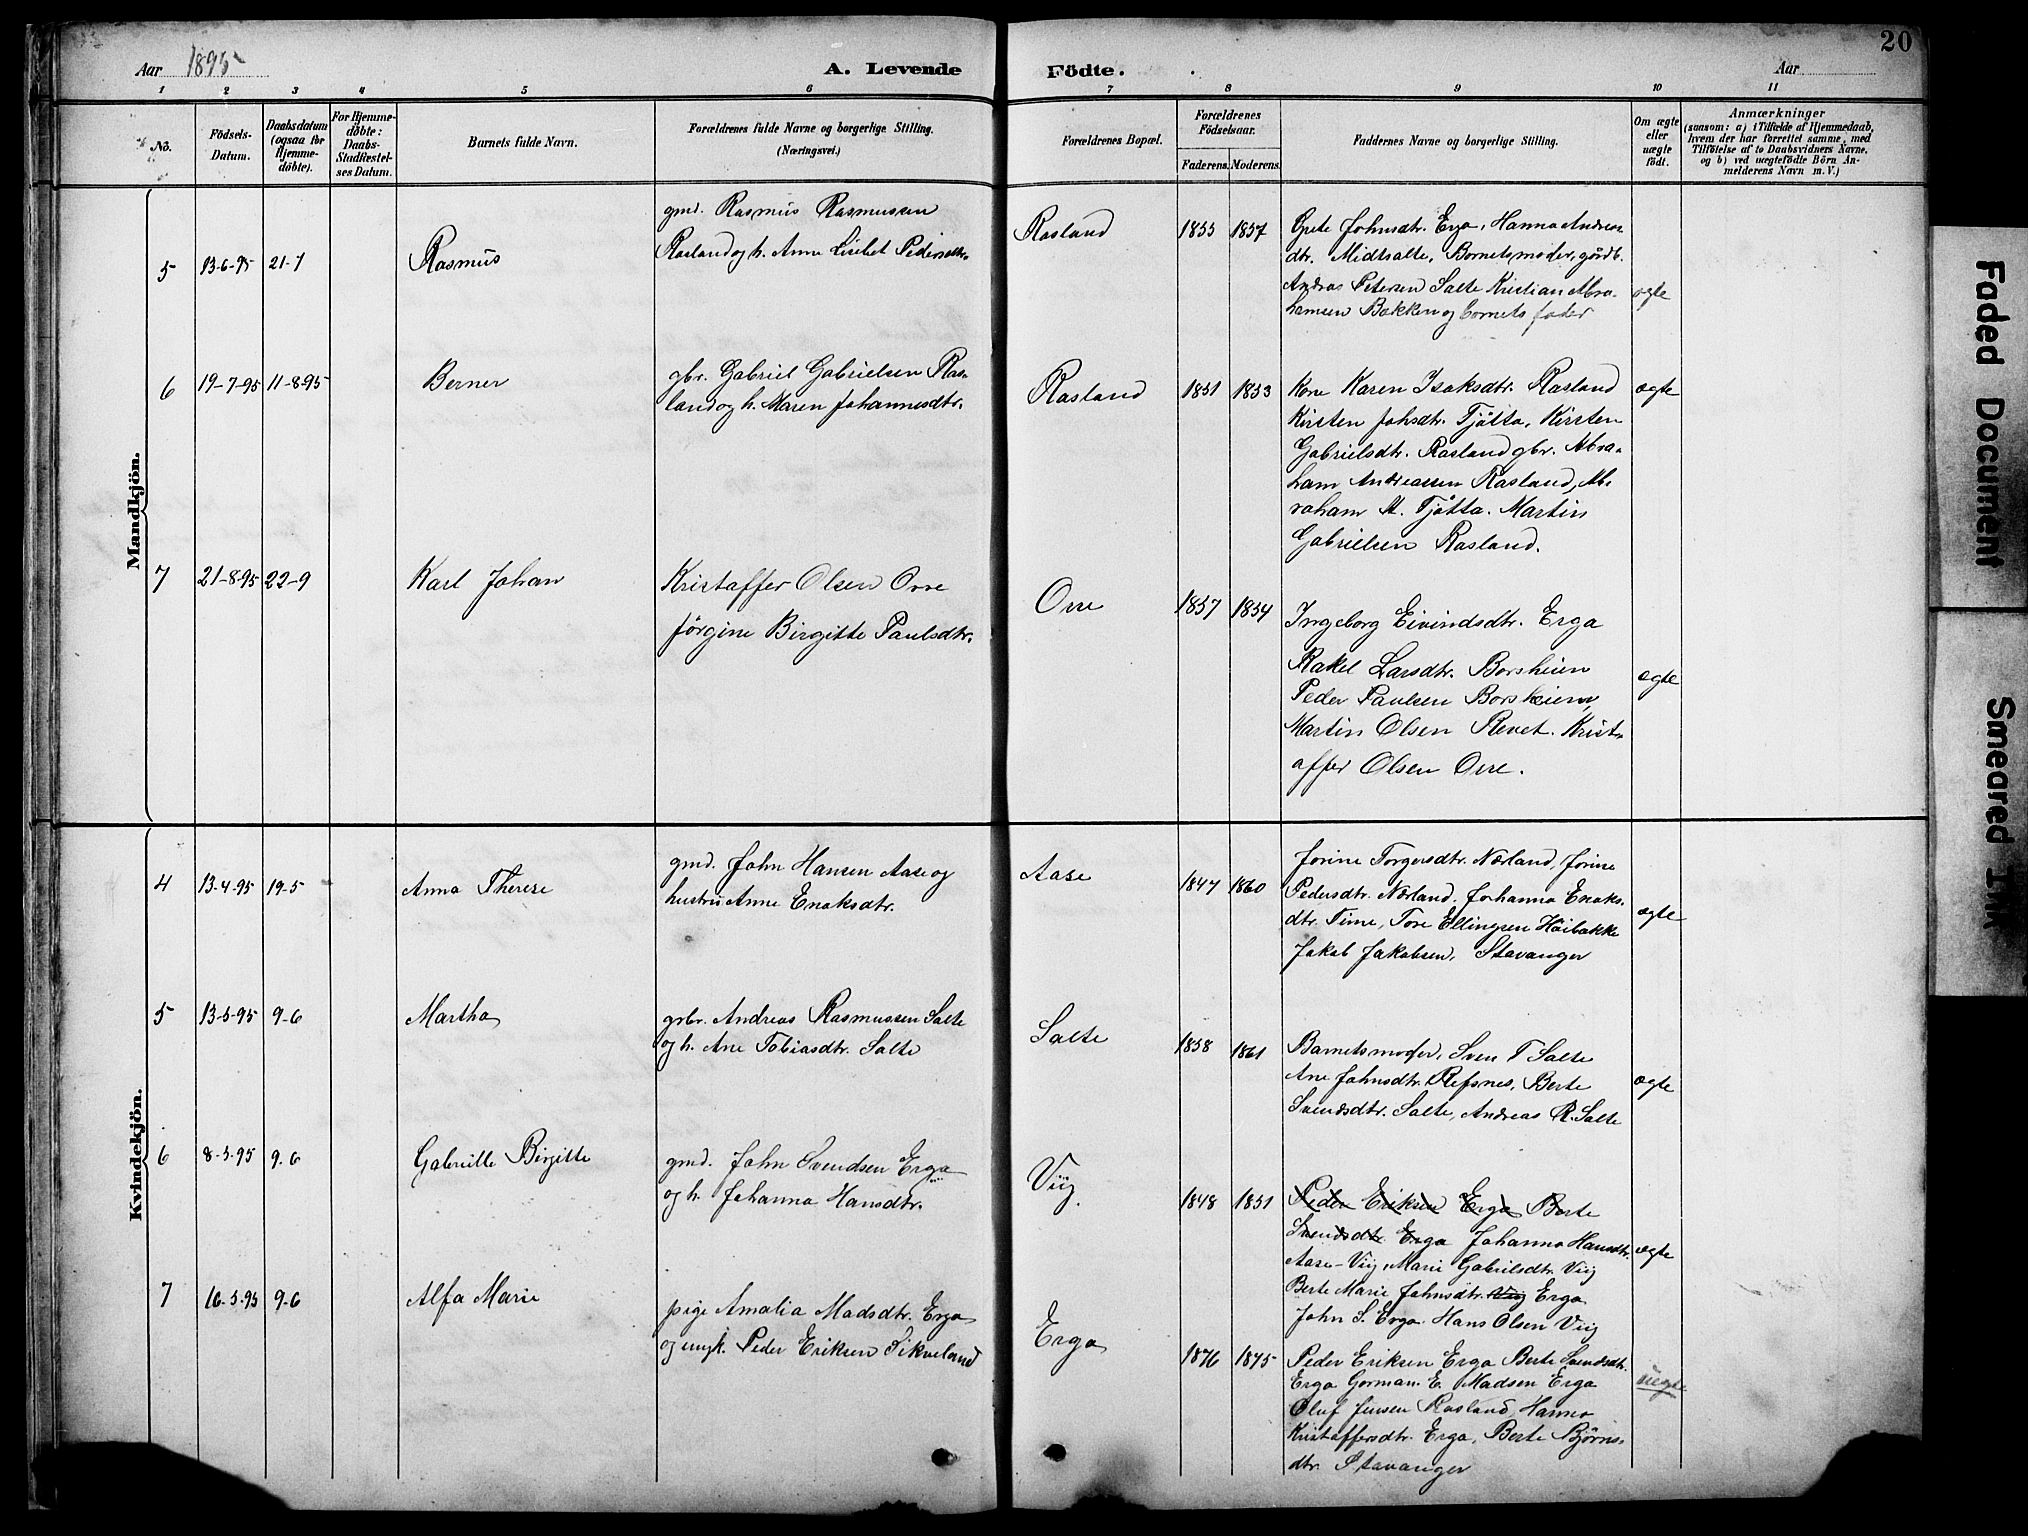 20
Aar 1895
A. Levende Födte.
Aar
1 2 3 4 5 6 7 8 9 10 11
No.
Födsels-Datum.
Daabsdatum (ogsaa for Hjemmedøbte).
For Hjemmedøbte: Daabs-Stadfæstelses Datum.
Barnets fulde Navn.
Forældrenes fulde Navne og borgerlige Stilling. (Næringsvei.)
Forældrenes Bopæl.
Forældrenes Födselsaar.
Faderens. Moderens.
Faddernes Navne og borgerlige Stilling.
Om ægte eller uægte födt.
Anmærkninger
(saasom: a) i Tilfælde af Hjemmedaab,
hvem der har forrettet samme, med
Tilföielse af to Daabsvidners Navne,
og b) ved uægtefödte Börn An-
melderens Navn m. V.)
Mandkjön.
5 13-6-95 21-7
Rasmus
gmd. Rasmus Rasmussen
Rasland og h. Anne Lisebet Pedersdtr.
Rasland
1855 1857
Grete Johnsdtr. Erga, Hanna Andreas-
dtr. Midtsalte, Barnets moder, gårdb.
Andreas Petersen Salte Kristian Abra-
hamsen Bakken og barnets fader
ægte
6 19-7-95 11-8-95
Berner
gbr. Gabriel Gabrielsen Ras-
land og h. Maren Johannesdtr.
Rasland
1851 1853
Kone Karen Isaksdtr. Rasland
Kirsten Johsdtr. Tjøtta, Kirsten
Gabrielsdtr. Rasland gbr. Abra-
ham Andreassen Rasland, Ab-
raham A. Tjøtta. Martin
Gabrielsen Rasland.
ægte
7 21-8-95 22-9
Karl Johan
Kristaffer Olsen Orre
Jörgine Birgitte Paulsdtr.
Orre
1857 1854
Ingeborg Eivindsdtr. Erga
Rakel Larsdtr. Borsheim
Peder Paulsen Borsheim,
Martin Olsen Revet. Krist-
affer Olsen Orre.
ægte
Kvindekjön.
4 13-4-95 19-5
Anna Therese
gmd. John Hansen Aase og
hustru Anne Enoksdtr.
Aase
1847 1860
Jorine Torgersdtr. Nærland, Jorine
Pedersdtr. Nærland. Johanna Enoks-
dtr. Time, Tore Ellingsen Höibakke
Jakob Jakobsen, Stavanger
ægte
5 13-5-95 9-6
Martha
grbr. Andreas Rasmussen Salte
og h. Ane Tobiasdtr. Salte
Salte
1858 1861
Barnets moder, Sven T Salte
Ane Johnsdtr. Refsnes, Berte
Svendsdtr. Salte, Andreas R. Salte
ægte
6 8-5-95 9-6
Gabrielle Birgitte
gmd. John Svendsen Erga
og h. Johanna Hansdtr.
Viig.
1848 1851
Peder Eriksen Erga Berte
Svendsdtr Erga Johanna Hansdtr.
Aase-Viig, Marie Gabrielsdtr. Viig
Berte Marie Johnsdtr. Viig Erga
John S. Erga. Hans Olsen Viig
ægte
7 16-5-95 9-6
Alfa Marie
pige Amalia Madsdtr. Erga
og ungk. Peder Eriksen Sikveland
Erga
1876 1875
Peder Eriksen Erga Berte Svendsdtr.
Erga Gorman. E. Madsen Erga
Oluf Jensen Rasland, Hanna
Kristaffersdtr. Erga, Berte Björns-
dtr. Stavanger
uægte
Faded Document
Smeared Ink